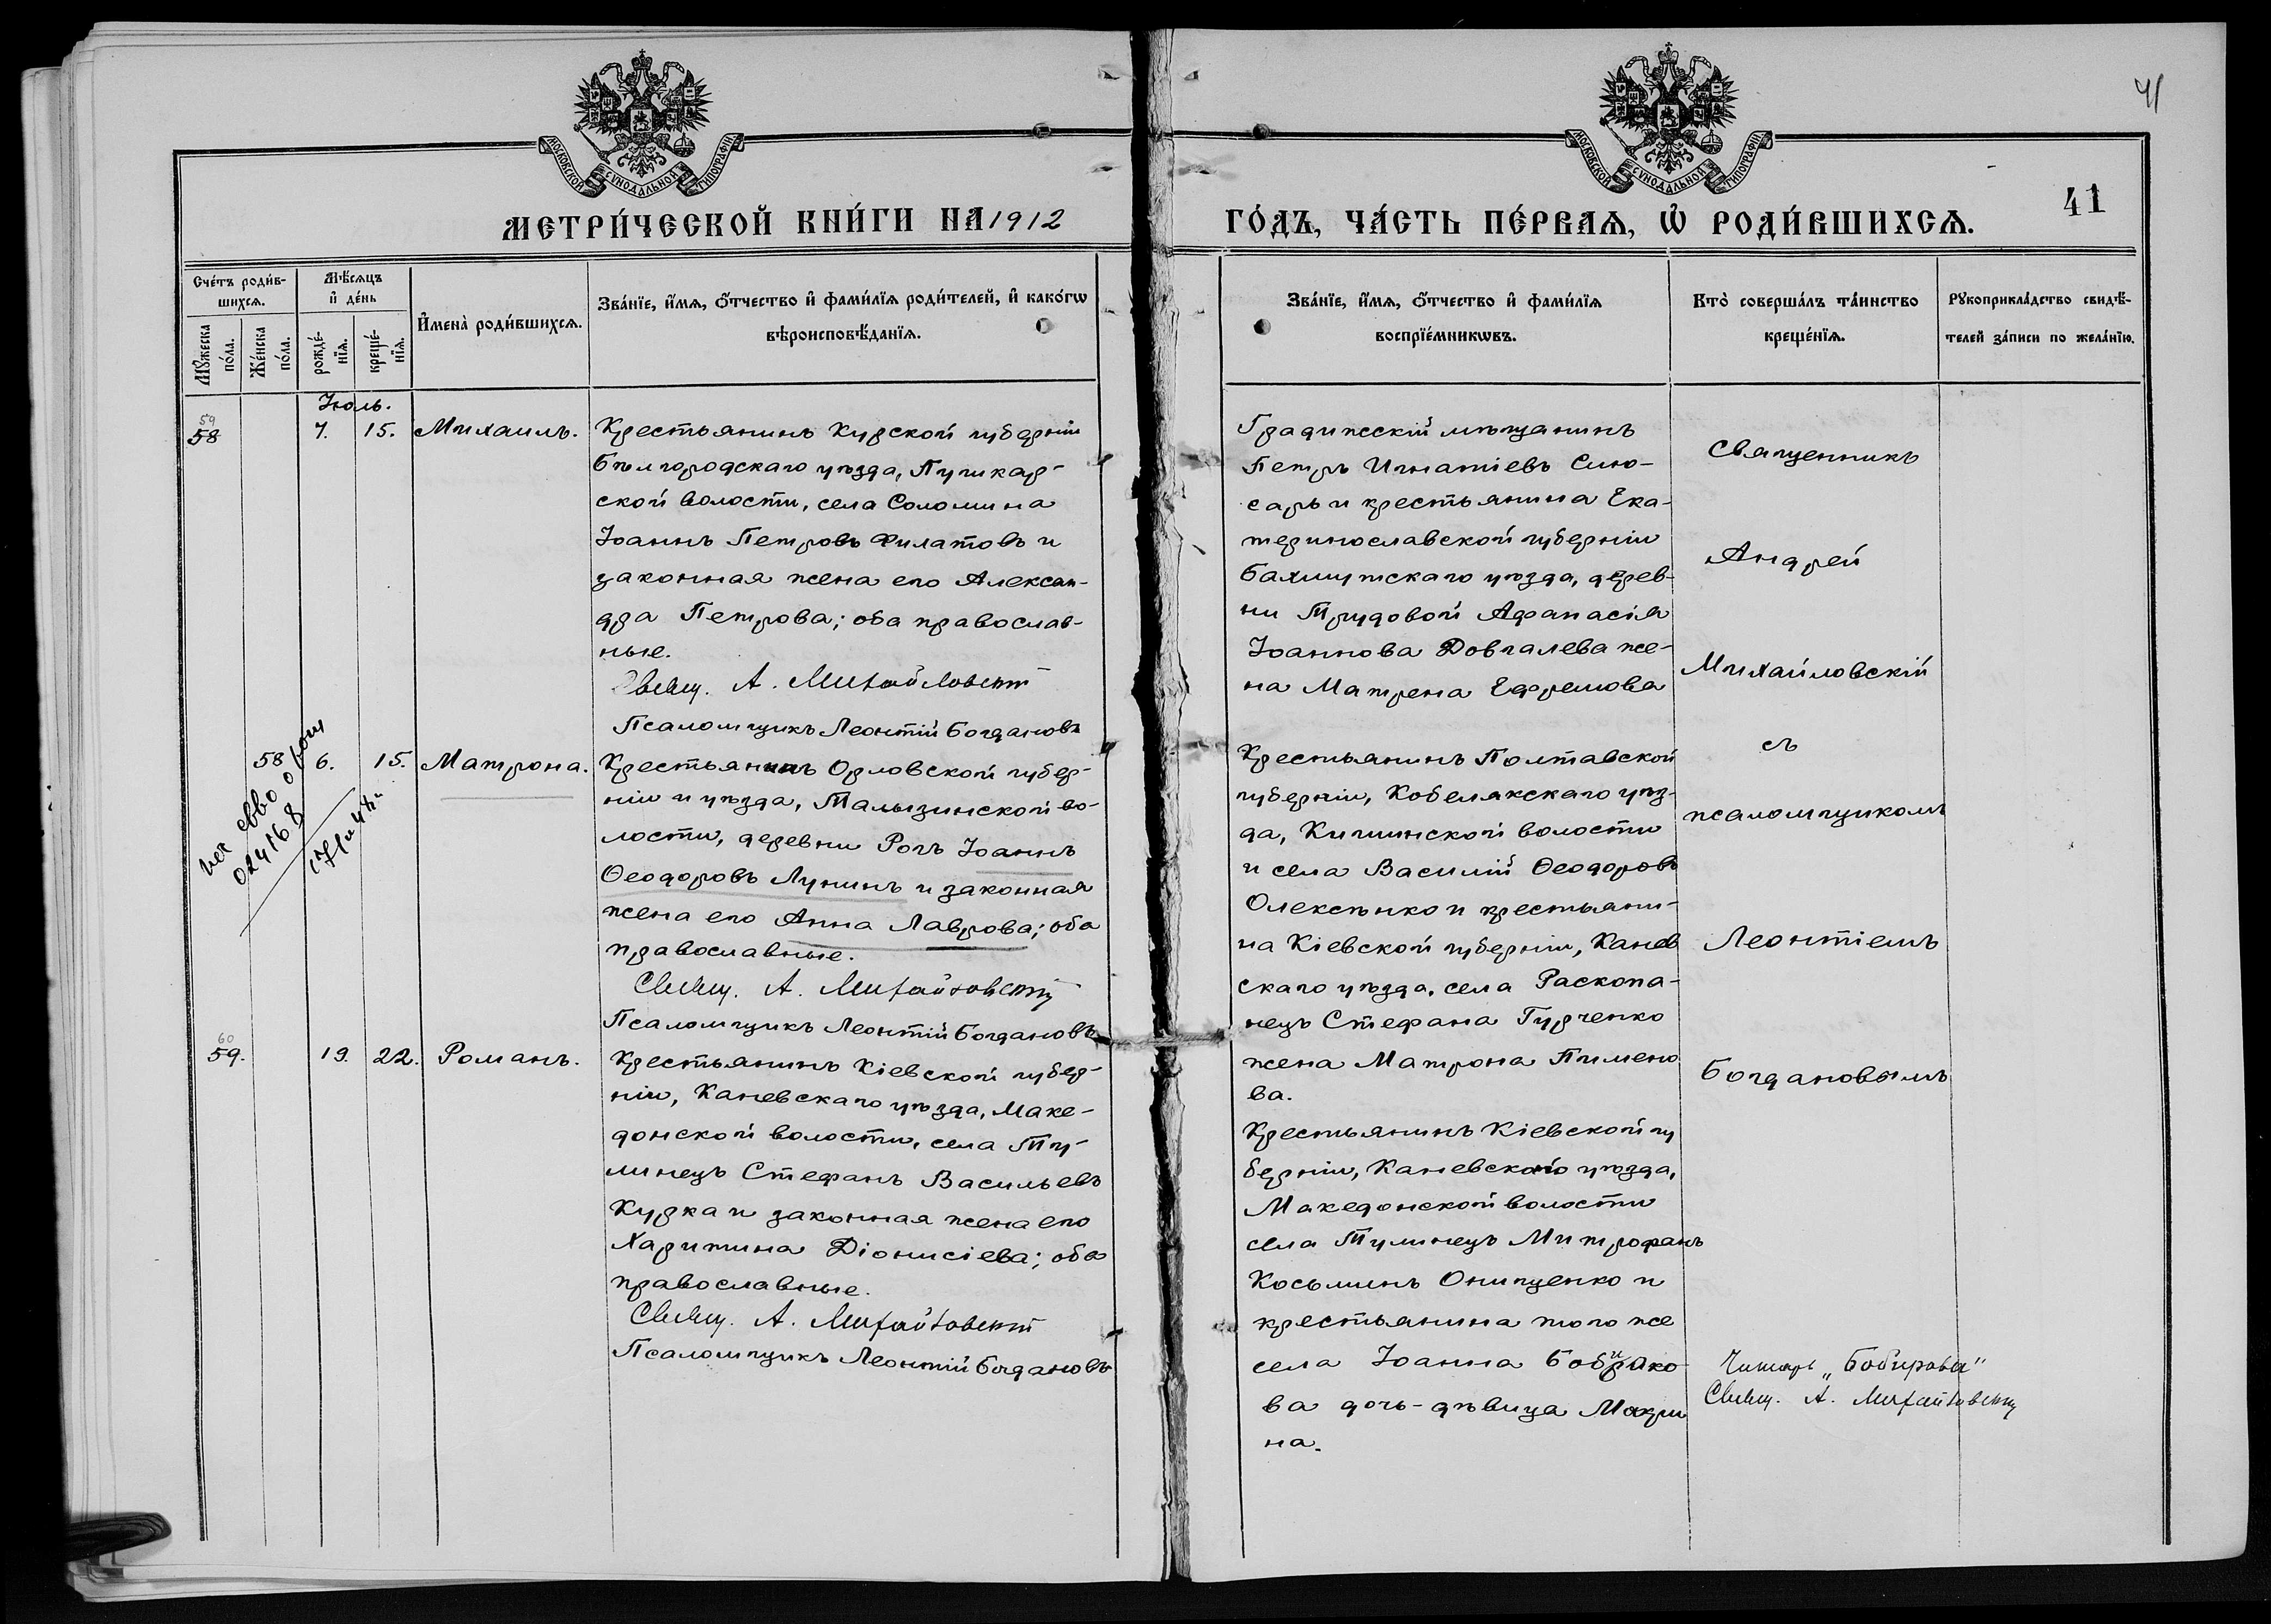 41
МОСКОВСКОЙ СѴНОДАЛЬНОЙ ТИПОГРАФІИ
МОСКОВСКОЙ СѴНОДАЛЬНОЙ ТИПОГРАФІИ
41
МЕТРИ́ЧЕСКОЙ КНИ́ГИ НА 1912
ГО́ДЪ, ЧА́СТЬ ПЕ́РВАѦ, Ѿ РОДИ́ВШИХСѦ.
Сче́тъ роди́в-
шихсѧ.
Мꙋжеска по́ла.
Же́нска по́ла.
Мѣ́сѧцъ
и҆ де́нь
рожде́-
нїѧ.
креще́-
нїѧ.
И҆мена̀ роди́вшихсѧ.
Зва́нїе, и҆́мѧ, ѻ҆́тчество и҆ фами́лїѧ роди́телей, и҆ како́гѡ
вѣроисповѣ́данїѧ.
Зва́нїе, и҆́мѧ, ѻ҆́тчество и҆ фами́лїѧ
воспрїе́мникѡвъ.
Кто̀ соверша́лъ та́инство
креще́нїѧ.
Рꙋкоприкла́дство свидѣ́-
телей за́писи по жела́нїю.
Іюль.
59
58
7. 15. Михаилъ.
Крестьянинъ Курской губерніи
Бѣлгородскаго уѣзда, Пушкар-
ской волости, села Соломина
Іоаннъ Петровъ Филатовъ и
законная жена его Алексан-
дра Петрова; оба православ-
ные.
Свящ. А. Михайловскій
Псаломщикъ Леонтій Богдановъ
Градижскій мѣщанинъ
Петръ Игнатіевъ Слю-
сарь и крестьянина Ека-
теринославской губерніи
Бахмутскаго уѣзда, дерев-
ни Трудовой Афанасія
Іоаннова Довгалева же-
на Матрена Ефремова
58 6. 15. Матрона.
024168
Крестьянинъ Орловской губер-
ніи и уѣзда, Талызинской во-
лости, деревни Рогъ Іоаннъ
Ѳеодоровъ Лунинъ и законная
жена его Анна Лаврова; оба
православные.
Свящ. А. Михайловскій
Псаломщикъ Леонтій Богдановъ
Крестьянинъ Полтавской
губерніи, Кобелякскаго уѣз-
да, Кишинской волости
и села Василій Ѳеодоровъ
Олексѣнко и крестьяни-
на Кіевской губерніи, Канев
скаго уѣзда, села Раскопа-
нецъ Стефана Гурченко
жена Матрона Пимено
ва.
60
59. 19. 22. Романъ.
Крестьянинъ Кіевской губер-
ніи, Каневскаго уѣзда, Маке-
донской волости, села Ту-
линецъ Стефанъ Васильевъ
Курка и законная жена его
Харитина Діонисіева; оба
православные.
Свящ. А. Михайловскій
Псаломщикъ Леонтій Богдановъ
Крестьянинъ Кіевской гу
берніи, Каневскаго уѣзда,
Македонской волости
села Тулинецъ Митрофанъ
Косьминъ Онищенко и
крестьянина того же
села Іоанна Бобирако-
ва дочь-дѣвица Макри
на.
Священникъ
Андрей
Михайловскій
съ
псаломщикомъ
Леонтіемъ
Богдановымъ
Свящ. А. Михайловскій